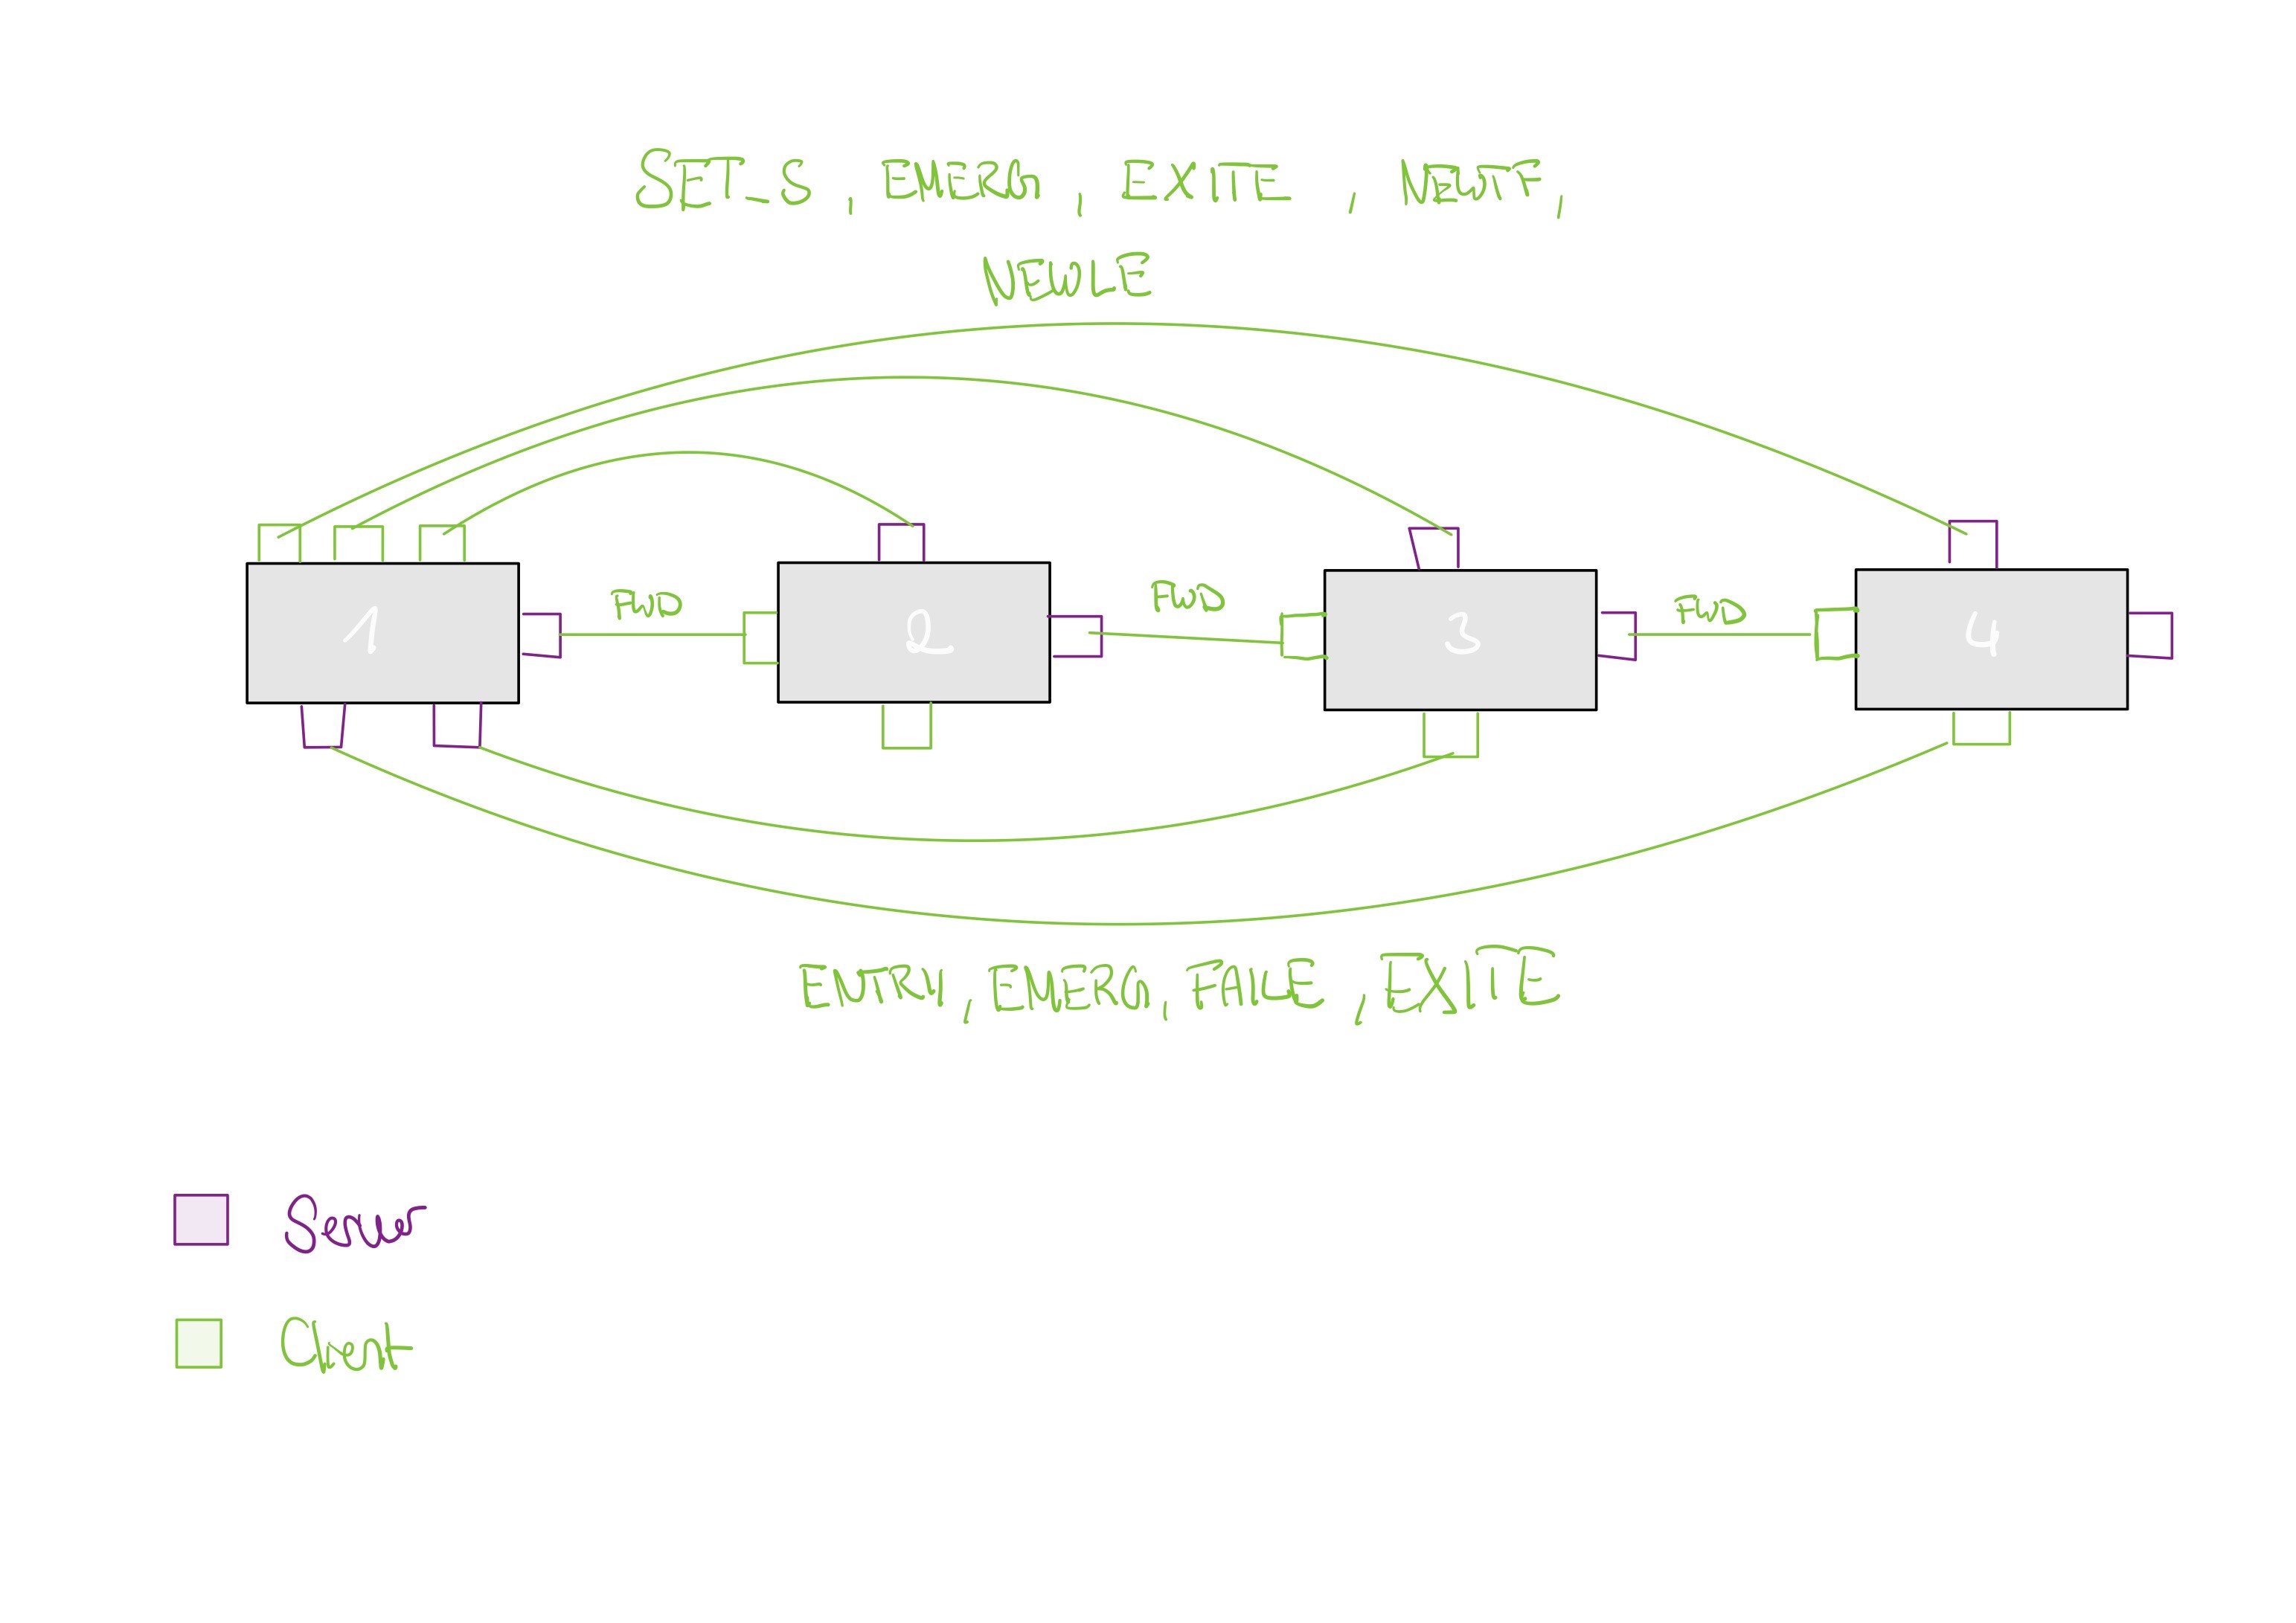 SET_S , EMERG , EXITE , NEWTF ,
NEWLE
FWD
FWD
FWD
1
2
3
4
ENTRY , EMERG , FAILE , EXITE
Server
Client